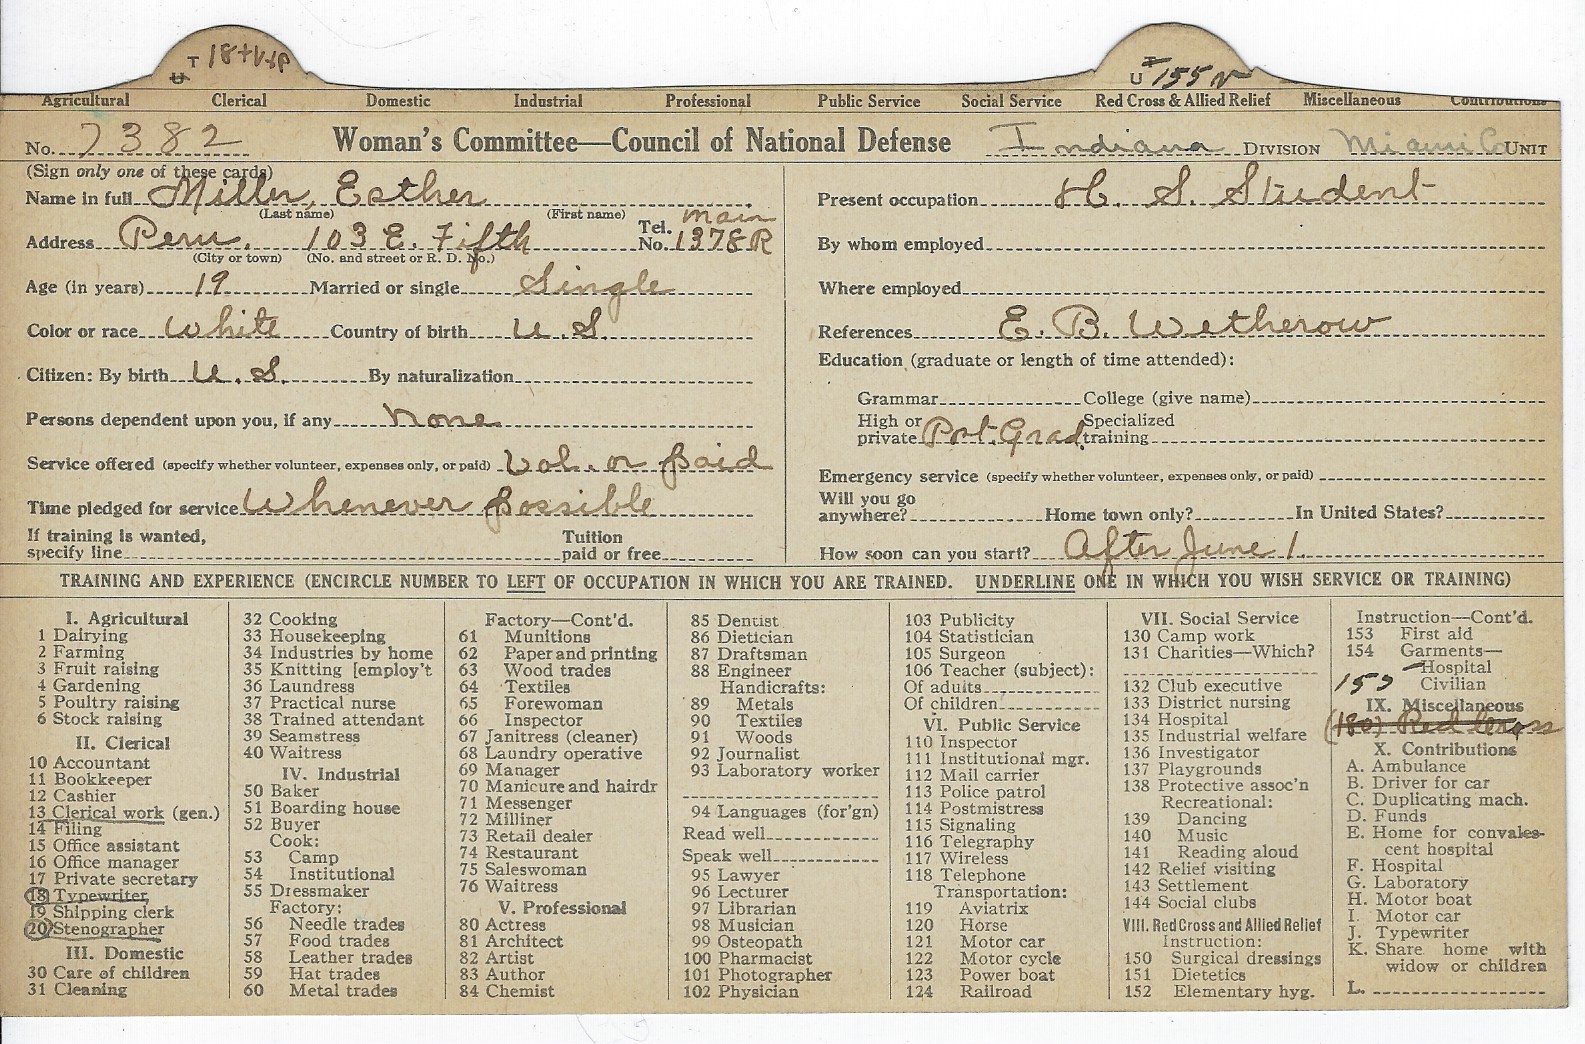 T 18+Vp
U
T
U 155 v
Agricultural Clerical Domestic Industrial Professional Public Service Social Service Red Cross & Allied Relief Miscellaneous Contributions
No. 7382 Woman's Committee—Council of National Defense Indiana DIVISION Miami Co UNIT
(Sign only one of these cards)
Name in full Miller, Esther
(Last name) (First name)
Address Peru, 103 E. Fifth Tel. No. Main 1378R
(City or town) (No. and street or R. D. No.)
Age (in years) 19 Married or single Single
Color or race White Country of birth U.S.
Citizen: By birth U.S. By naturalization
Persons dependent upon you, if any None
Service offered (specify whether volunteer, expenses only, or paid) Vol. or paid
Time pledged for service Whenever possible
If training is wanted, specify line Tuition paid or free
Present occupation H. S. Student
By whom employed
Where employed
References E. B. Wetherow
Education (graduate or length of time attended):
Grammar College (give name)
High or private Post. Grad. Specialized training
Emergency service (specify whether volunteer, expenses only, or paid)
Will you go anywhere? Home town only? In United States?
How soon can you start? After June 1.
TRAINING AND EXPERIENCE (ENCIRCLE NUMBER TO LEFT OF OCCUPATION IN WHICH YOU ARE TRAINED. UNDERLINE ONE IN WHICH YOU WISH SERVICE OR TRAINING)
I. Agricultural
1 Dairying
2 Farming
3 Fruit raising
4 Gardening
5 Poultry raising
6 Stock raising
II. Clerical
10 Accountant
11 Bookkeeper
12 Cashier
13 Clerical work (gen.)
14 Filing
15 Office assistant
16 Office manager
17 Private secretary
18 Typewriter
19 Shipping clerk
20 Stenographer
III. Domestic
30 Care of children
31 Cleaning
32 Cooking
33 Housekeeping
34 Industries by home
35 Knitting [employ't
36 Laundress
37 Practical nurse
38 Trained attendant
39 Seamstress
40 Waitress
IV. Industrial
50 Baker
51 Boarding house
52 Buyer
Cook:
53 Camp
54 Institutional
55 Dressmaker
Factory:
56 Needle trades
57 Food trades
58 Leather trades
59 Hat trades
60 Metal trades
Factory—Cont'd.
61 Munitions
62 Paper and printing
63 Wood trades
64 Textiles
65 Forewoman
66 Inspector
67 Janitress (cleaner)
68 Laundry operative
69 Manager
70 Manicure and hairdr
71 Messenger
72 Milliner
73 Retail dealer
74 Restaurant
75 Saleswoman
76 Waitress
V. Professional
80 Actress
81 Architect
82 Artist
83 Author
84 Chemist
85 Dentist
86 Dietician
87 Draftsman
88 Engineer
Handicrafts:
89 Metals
90 Textiles
91 Woods
92 Journalist
93 Laboratory worker
94 Languages (for'gn)
Read well
Speak well
95 Lawyer
96 Lecturer
97 Librarian
98 Musician
99 Osteopath
100 Pharmacist
101 Photographer
102 Physician
103 Publicity
104 Statistician
105 Surgeon
106 Teacher (subject):
Of adults
Of children
VI. Public Service
110 Inspector
111 Institutional mgr.
112 Mail carrier
113 Police patrol
114 Postmistress
115 Signaling
116 Telegraphy
117 Wireless
118 Telephone
Transportation:
119 Aviatrix
120 Horse
121 Motor car
122 Motor cycle
123 Power boat
124 Railroad
VII. Social Service
130 Camp work
131 Charities—Which?
132 Club executive
133 District nursing
134 Hospital
135 Industrial welfare
136 Investigator
137 Playgrounds
138 Protective assoc'n
Recreational:
139 Dancing
140 Music
141 Reading aloud
142 Relief visiting
143 Settlement
144 Social clubs
VIII. Red Cross and Allied Relief
Instruction:
150 Surgical dressings
151 Dietetics
152 Elementary hyg.
Instruction—Cont'd.
153 First aid
154 Garments—
Hospital
Civilian
IX. Miscellaneous
(180) Red Cross
X. Contributions
A. Ambulance
B. Driver for car
C. Duplicating mach.
D. Funds
E. Home for convales-
cent hospital
F. Hospital
G. Laboratory
H. Motor boat
I. Motor car
J. Typewriter
K. Share home with
widow or children
L.